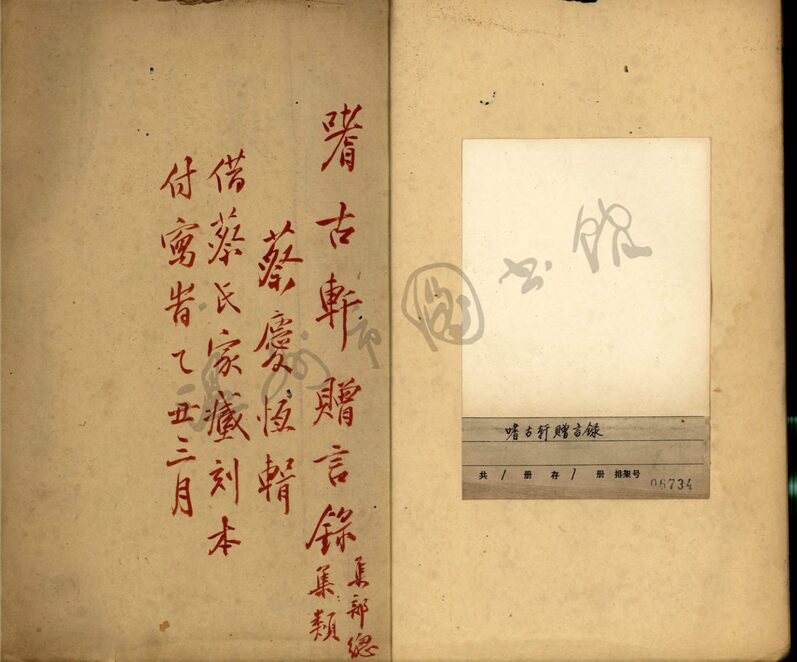 嗜古軒贈言錄
集部總
集類
蔡慶恆輯
借蔡氏家藏刻本
付寫時乙丑三月
嗜古軒贈言録
共 1 册 存 1 册 排架号 06734
温州市圖书館